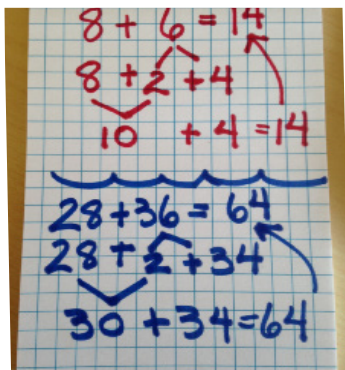 8 + 6 = 14
8 + 2 + 4
10 + 4 = 14
28 + 36 = 64
28 + 2 + 34
30 + 34 = 64